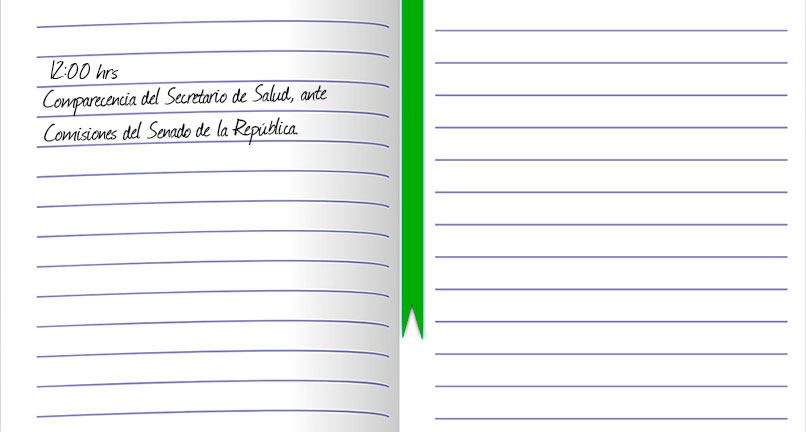 12:00 hrs
Comparecencia del Secretario de Salud, ante
Comisiones del Senado de la República.